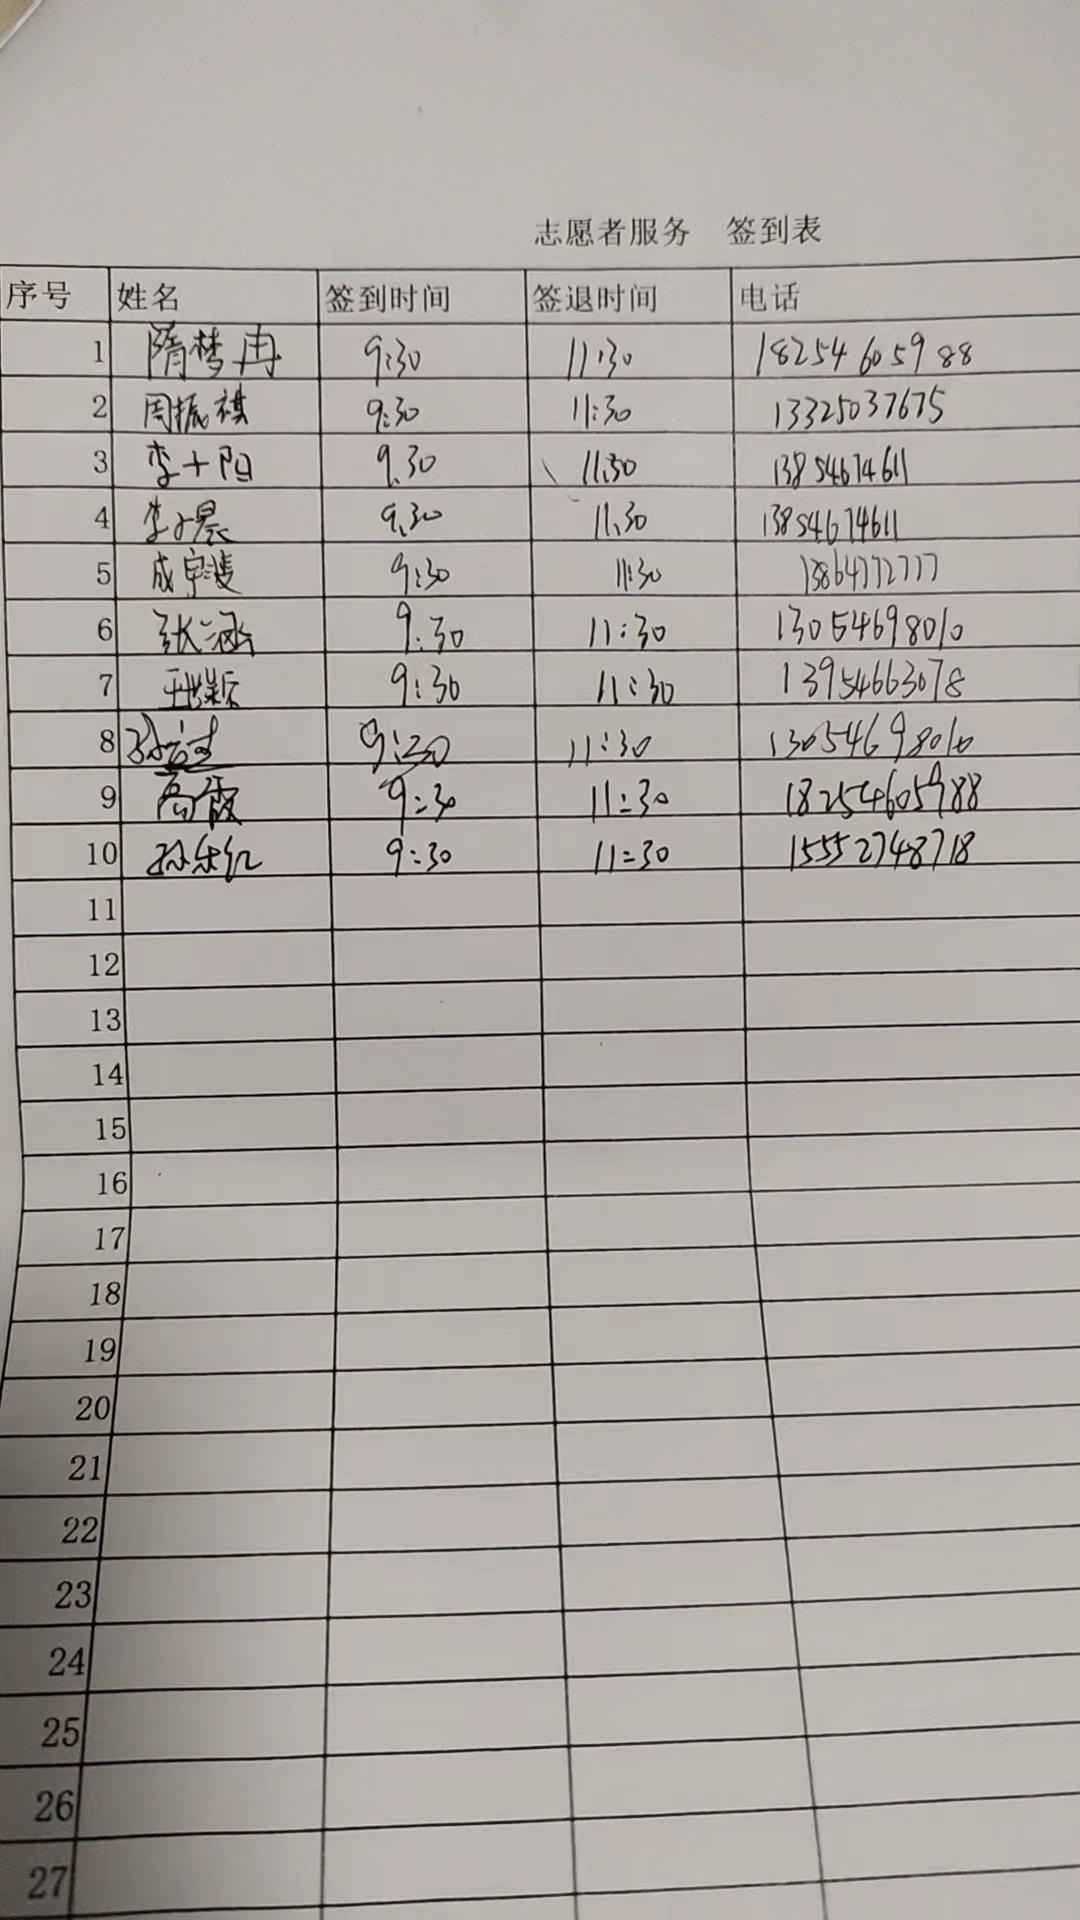 志愿者服务 签到表
序号 姓名 签到时间 签退时间 电话
1 隋梦冉 9:30 11:30 18254605988
2 周振祺 9:30 11:30 13325037675
3 李十阳 9.30 11.30 13854674611
4 李小晨 9.30 11.30 13854674611
5 成宇斐 9:30 11:30 13864772777
6 张涵 9:30 11:30 13054698010
7 9:30 11:30 13954663078
8 9:30 11:30 13054698010
9 高霞 9:30 11:30 18254605988
10 孙乐红 9:30 11:30 15552748718
11
12
13
14
15
16
17
18
19
20
21
22
23
24
25
26
27